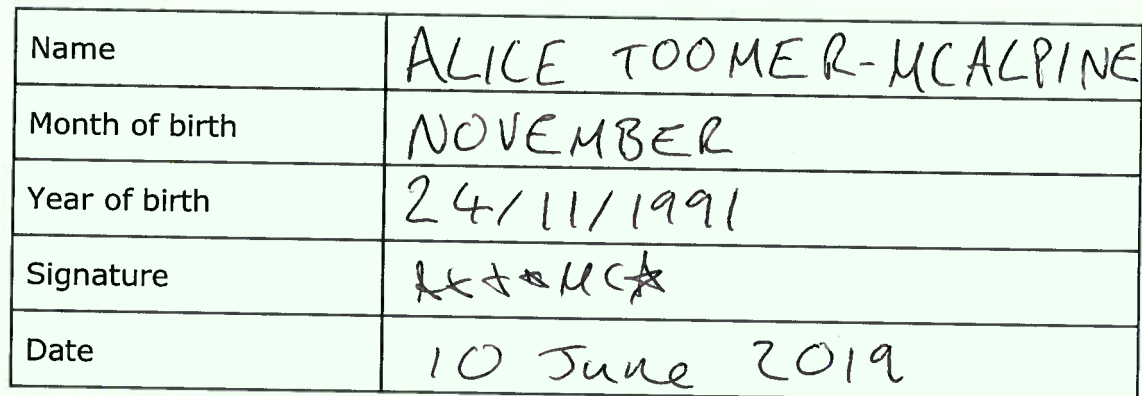 Name ALICE TOOMER-MCALPINE
Month of birth NOVEMBER
Year of birth 24/11/1991
Signature
Date 10 June 2019